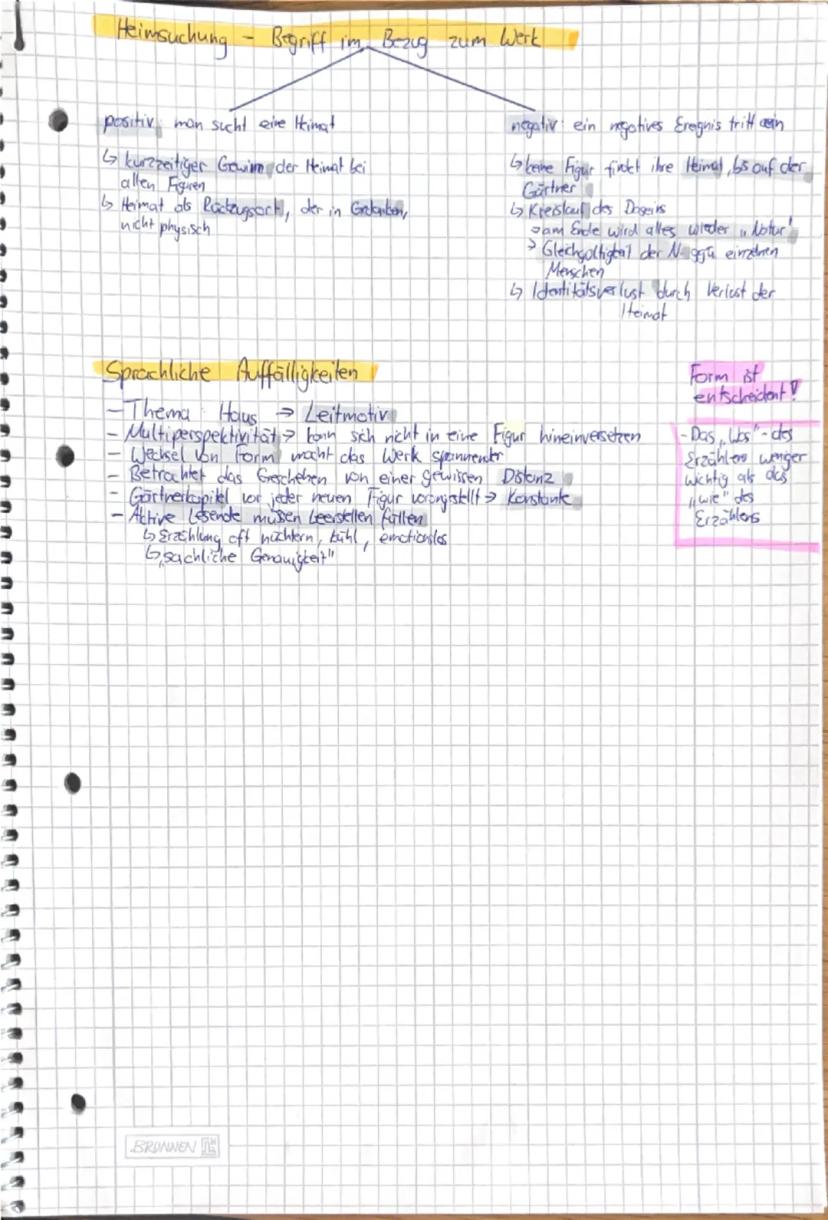 Heimsuchung – Begriff im Bezug zum Werk
positiv: man sucht eine Heimat
↳ kurzzeitiger Gewinn der Heimat bei
allen Figuren
↳ Heimat als Rückzugsort, der in Gedanken,
nicht physisch
negativ: ein negatives Ereignis tritt ein
↳ keine Figur findet ihre Heimat, bis auf der
Gärtner
↳ Kreislauf des Daseins
→ am Ende wird alles wieder „Natur"
> Gleichgültigkeit der N. ggü einzelnen
Menschen
↳ Identitätsverlust durch Verlust der
Heimat
Sprachliche Auffälligkeiten
– Thema: Haus → Leitmotiv
– Multiperspektivität → kann sich nicht in eine Figur hineinversetzen
– Wechsel von Form macht das Werk spannender
– Betrachtet das Geschehen von einer gewissen Distanz
– Gärtnerkapitel vor jeder neuen Figur vorangestellt → Konstante
– Aktive Lesende müssen Leerstellen füllen
↳ Erzählung oft nüchtern, kühl, emotionslos
↳ „sachliche Genauigkeit"
Form ist
entscheident!
- Das „Was" - des
Erzählens weniger
wichtig als das
„wie" des
Erzählens
BRUNNEN